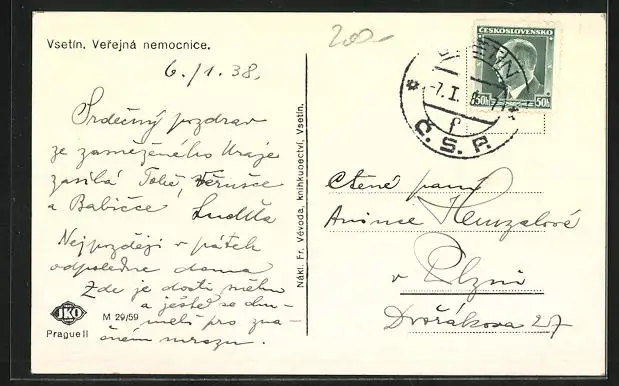 Vsetín, Veřejná nemocnice.
200-
6./1.38.
Srdečný pozdrav
ze zasněženého kraje
zasílá Tobě, Věrušce
a Babičce Luděk
Nejpozději v pátek
odpoledne doma
Zde je dosti sněhu
a ještě se chu-
melí pro zna-
čném mrazu.
IKO
Prague II
M 29/59
Nákl. Fr. Vévoda, knihkupectví, Vsetín.
ČESKOSLOVENSKO
50h 50h
VSETÍN
-7.I.
Č.S.P.
Ctěné paní
v Plzni
Dvořákova 27